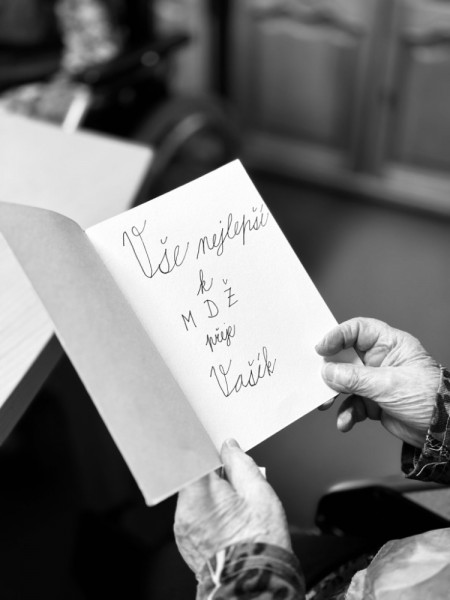 Vše nejlepší
k
M D Ž
přeje
Vašík